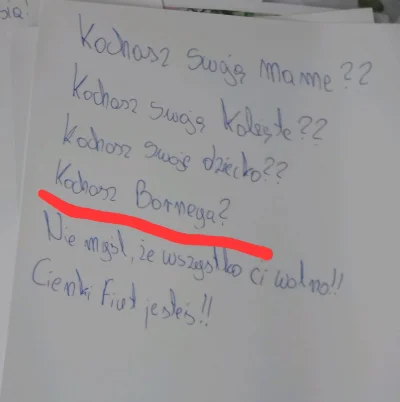 się!
Kochasz swoją mamę??
Kochasz swoją Koleste??
Kochasz swoje dziecko??
Kochasz Bornega?
Nie myśl, że wszystko ci wolno!!
Cienki Fiut jesteś!!